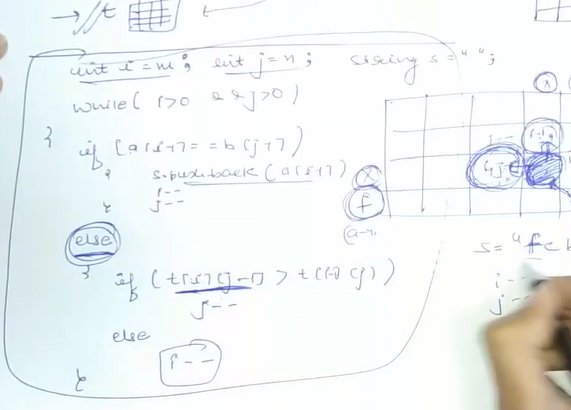 int i=m; int j=n; string s="";
while( i>0 && j>0)
{
if (a[i-1]==b[j-1])
{
s.push_back(a[i-1])
i--
j--
}
else
{
if (t[i][j-1] > t[i-1][j])
j--
else
i--
}
(i,j)
x
x
f
s="fcb
i--
j--